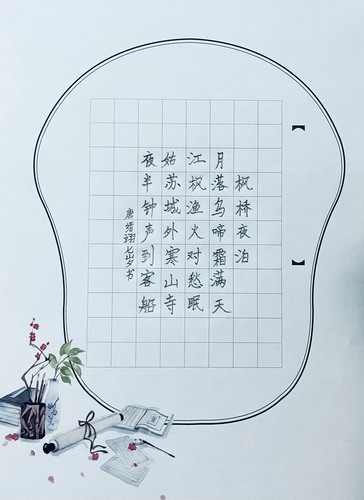 枫桥夜泊
月落乌啼霜满天
江枫渔火对愁眠
姑苏城外寒山寺
夜半钟声到客船
七岁书